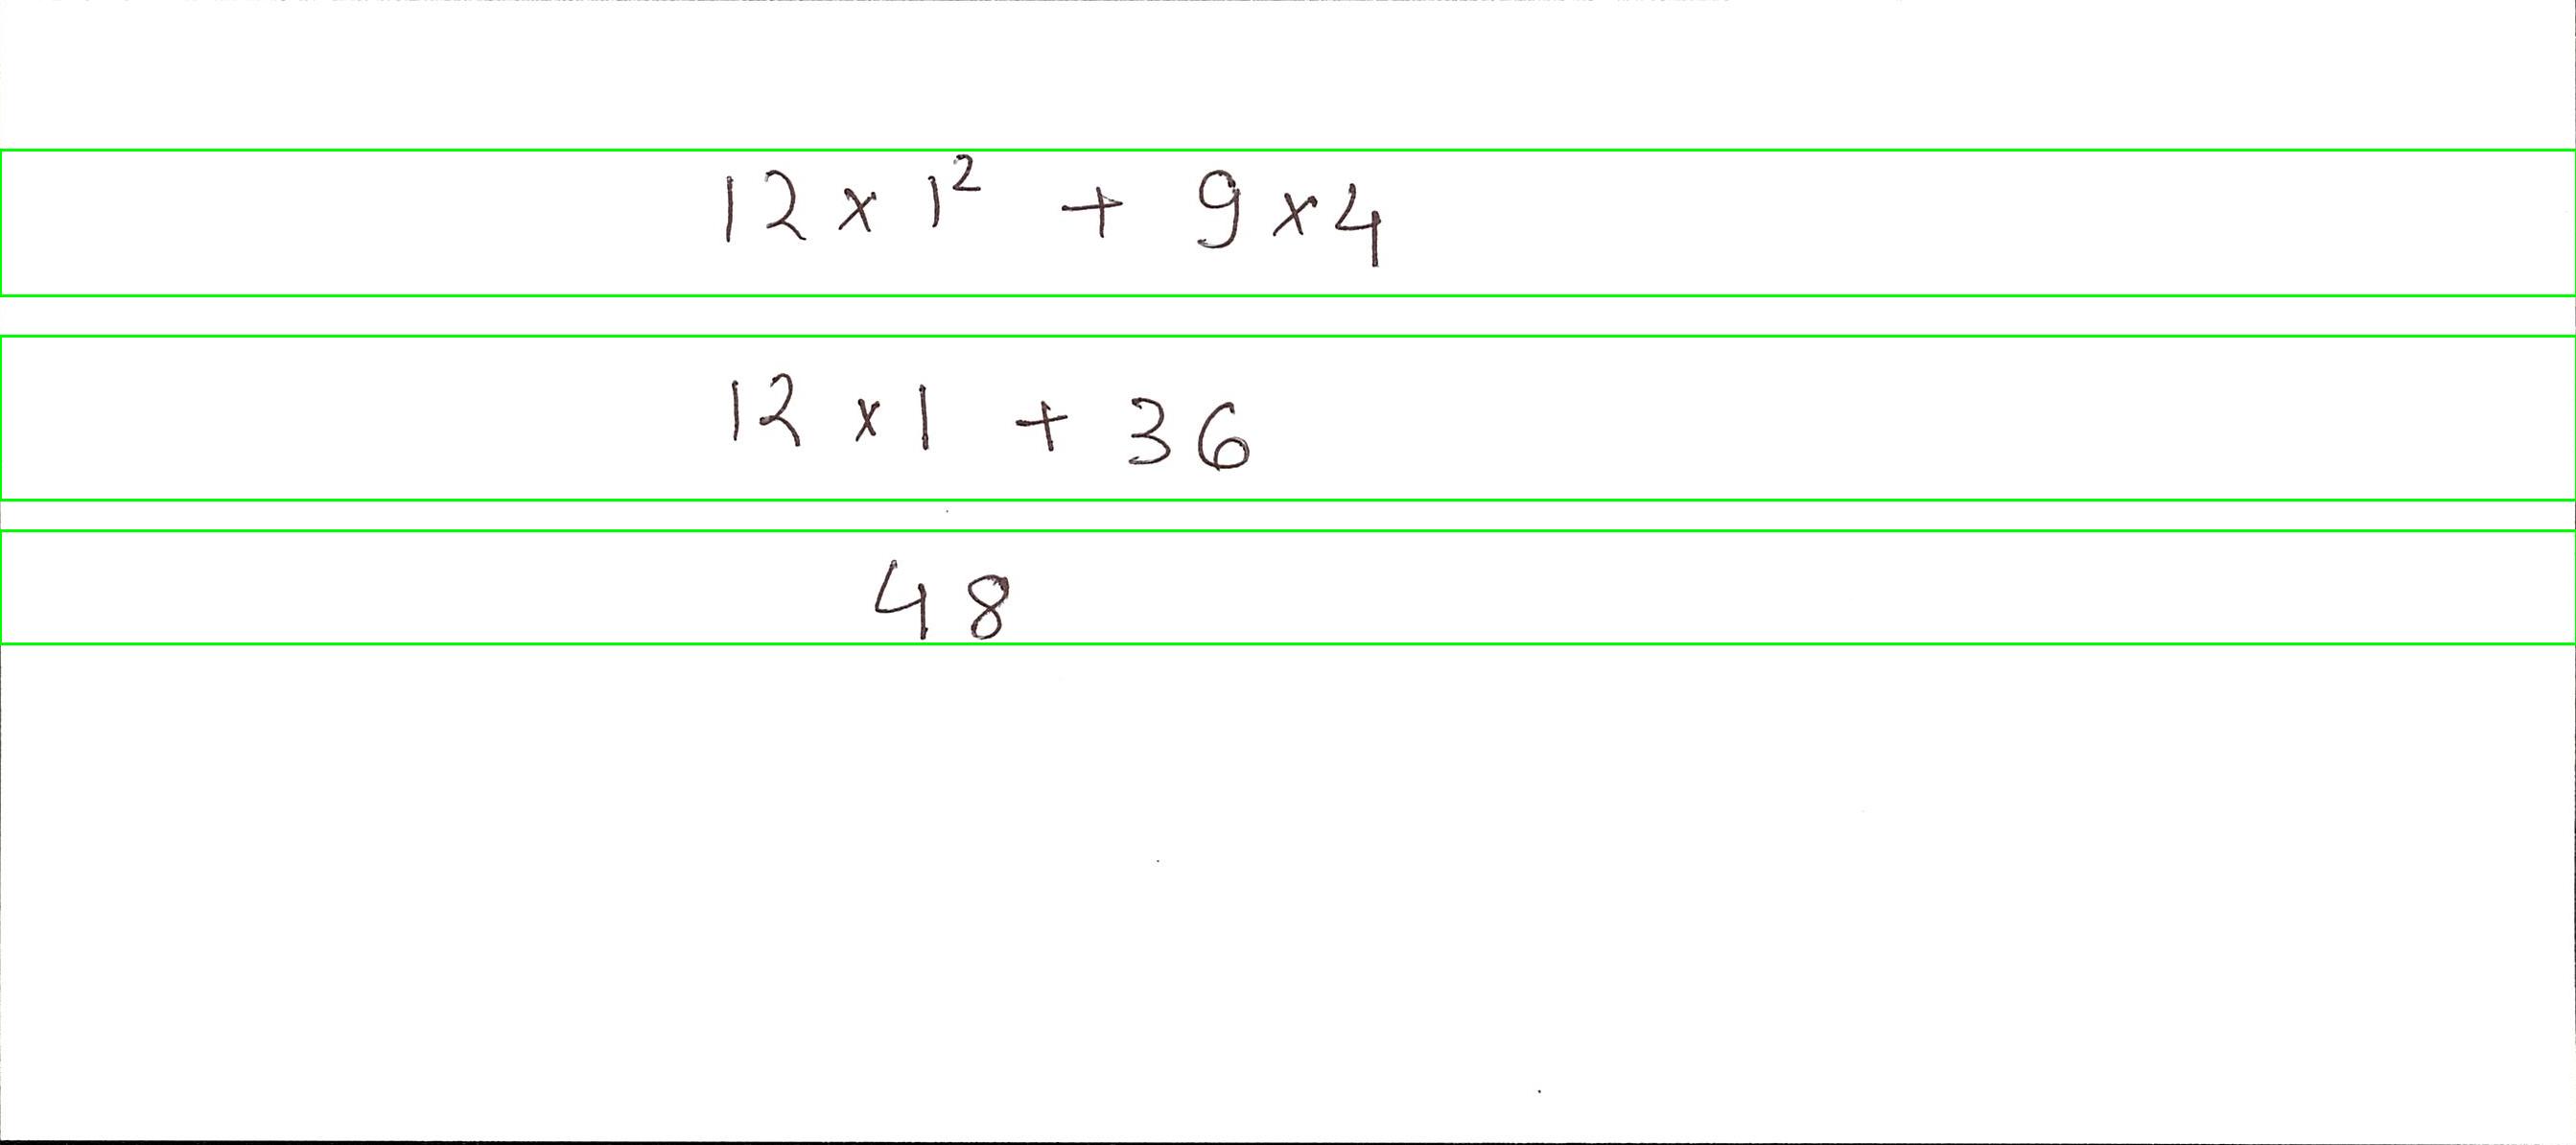 12 × 1² + 9 × 4
12 × 1 + 36
48